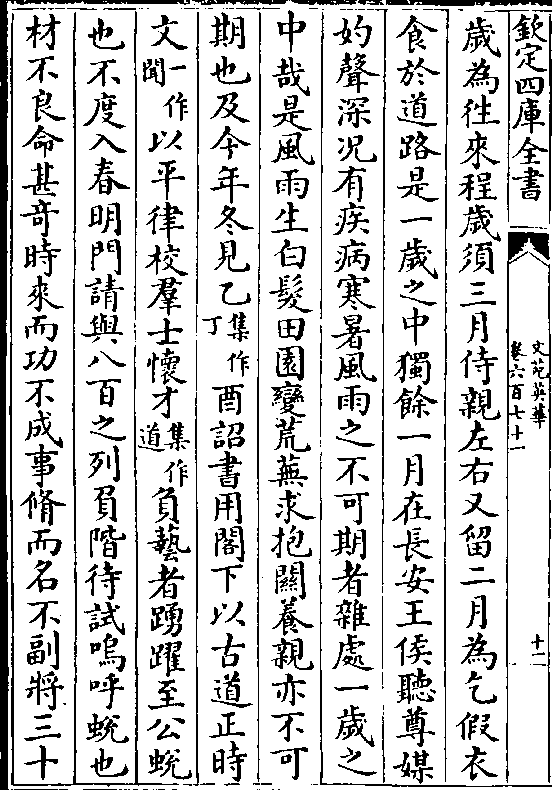 欽定四庫全書
文苑英華
卷六百七十一
十一
歲為徃來程歲須三月侍親左右又留二月為乞假衣
食於道路是一歲之中獨餘一月在長安王侯聽尊媒
妁聲深况有疾病寒暑風雨之不可期者雜處一歲之
中哉是風雨生白髮田園變荒蕪求抱關養親亦不可
期也及今年冬見乙集作丁酉詔書用閣下以古道正時
文一作聞以平律校羣士懷才集作道負藝者踴躍至公蛻
也不度入春明門請與八百之列負階待試嗚呼蛻也
材不良命甚竒時來而功不成事脩而名不副將三十